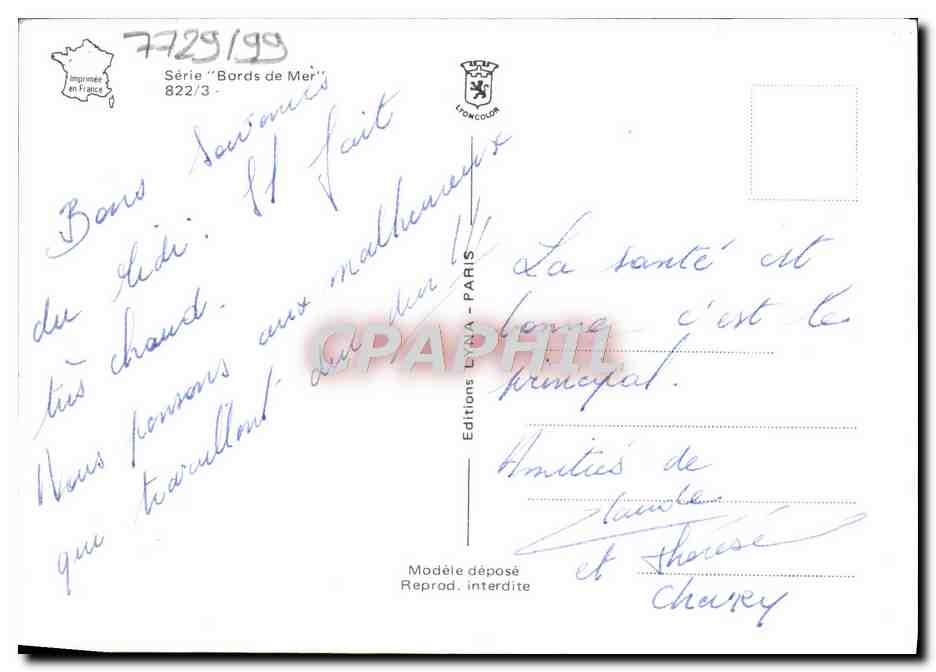 7729/99
Imprimée
en France
Série "Bords de Mer"
822/3 -
LYONCOLOR
Bons souvenirs
du Midi. Il fait
très chaud.
Nous pensons aux malheureux
qui travaillent dur dur !!
Editions LYNA - PARIS
CPAPHIL
La santé est
bonne c'est le
principal.
Amitiés de
Claude
et Thérèse
Chevry
Modèle déposé
Reprod. interdite